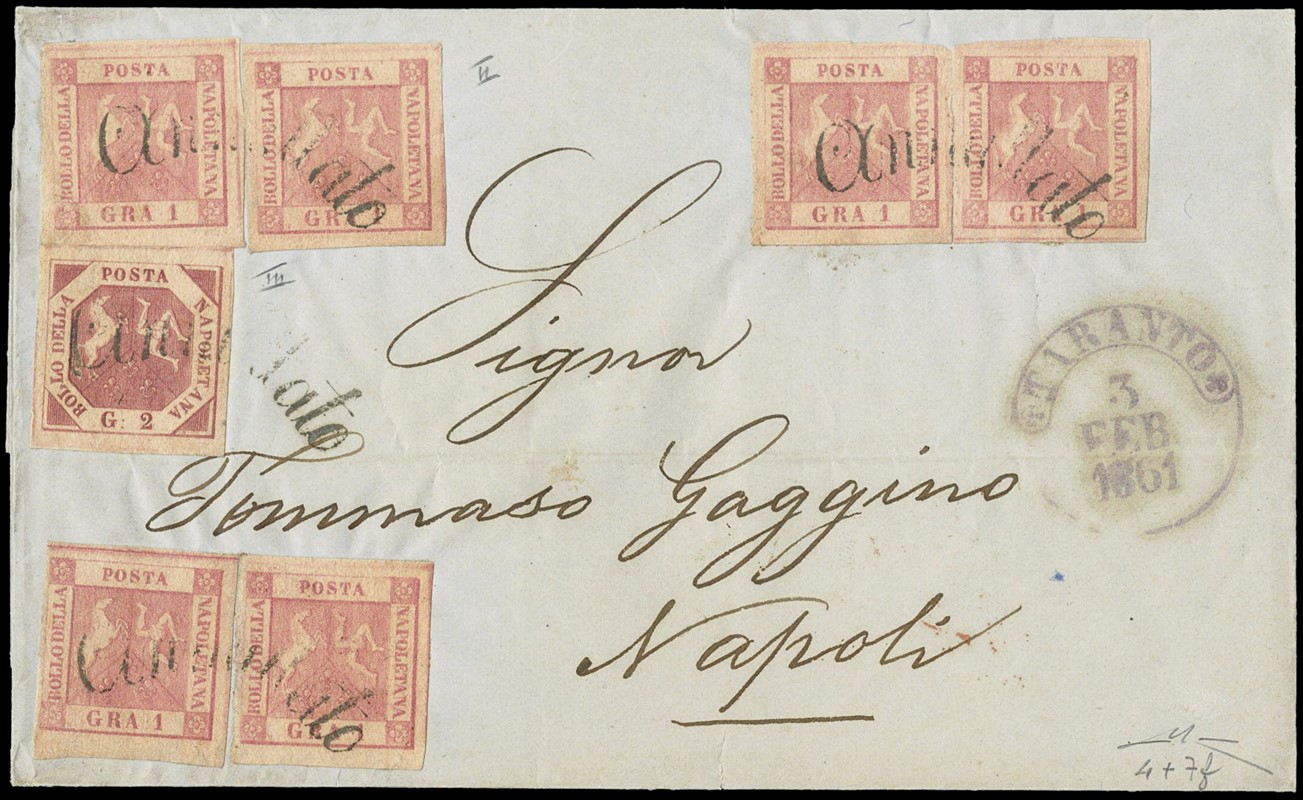 POSTA
BOLLO DELLA
NAPOLETANA
GRA 1
POSTA
BOLLO DELLA
NAPOLETANA
GR
Annullato
II
POSTA
BOLLO DELLA
NAPOLETANA
GRA 1
POSTA
BOLLO DELLA
NAPOLETANA
GR
Annullato
POSTA
BOLLO DELLA
NAPOLETANA
G: 2
Annullato
III
Signor
TARANTO
3
FEB
1861
Tommaso Gaggino
Napoli
POSTA
BOLLO DELLA
NAPOLETANA
GRA 1
POSTA
BOLLO DELLA
NAPOLETANA
GRA
Annullato
4+7f